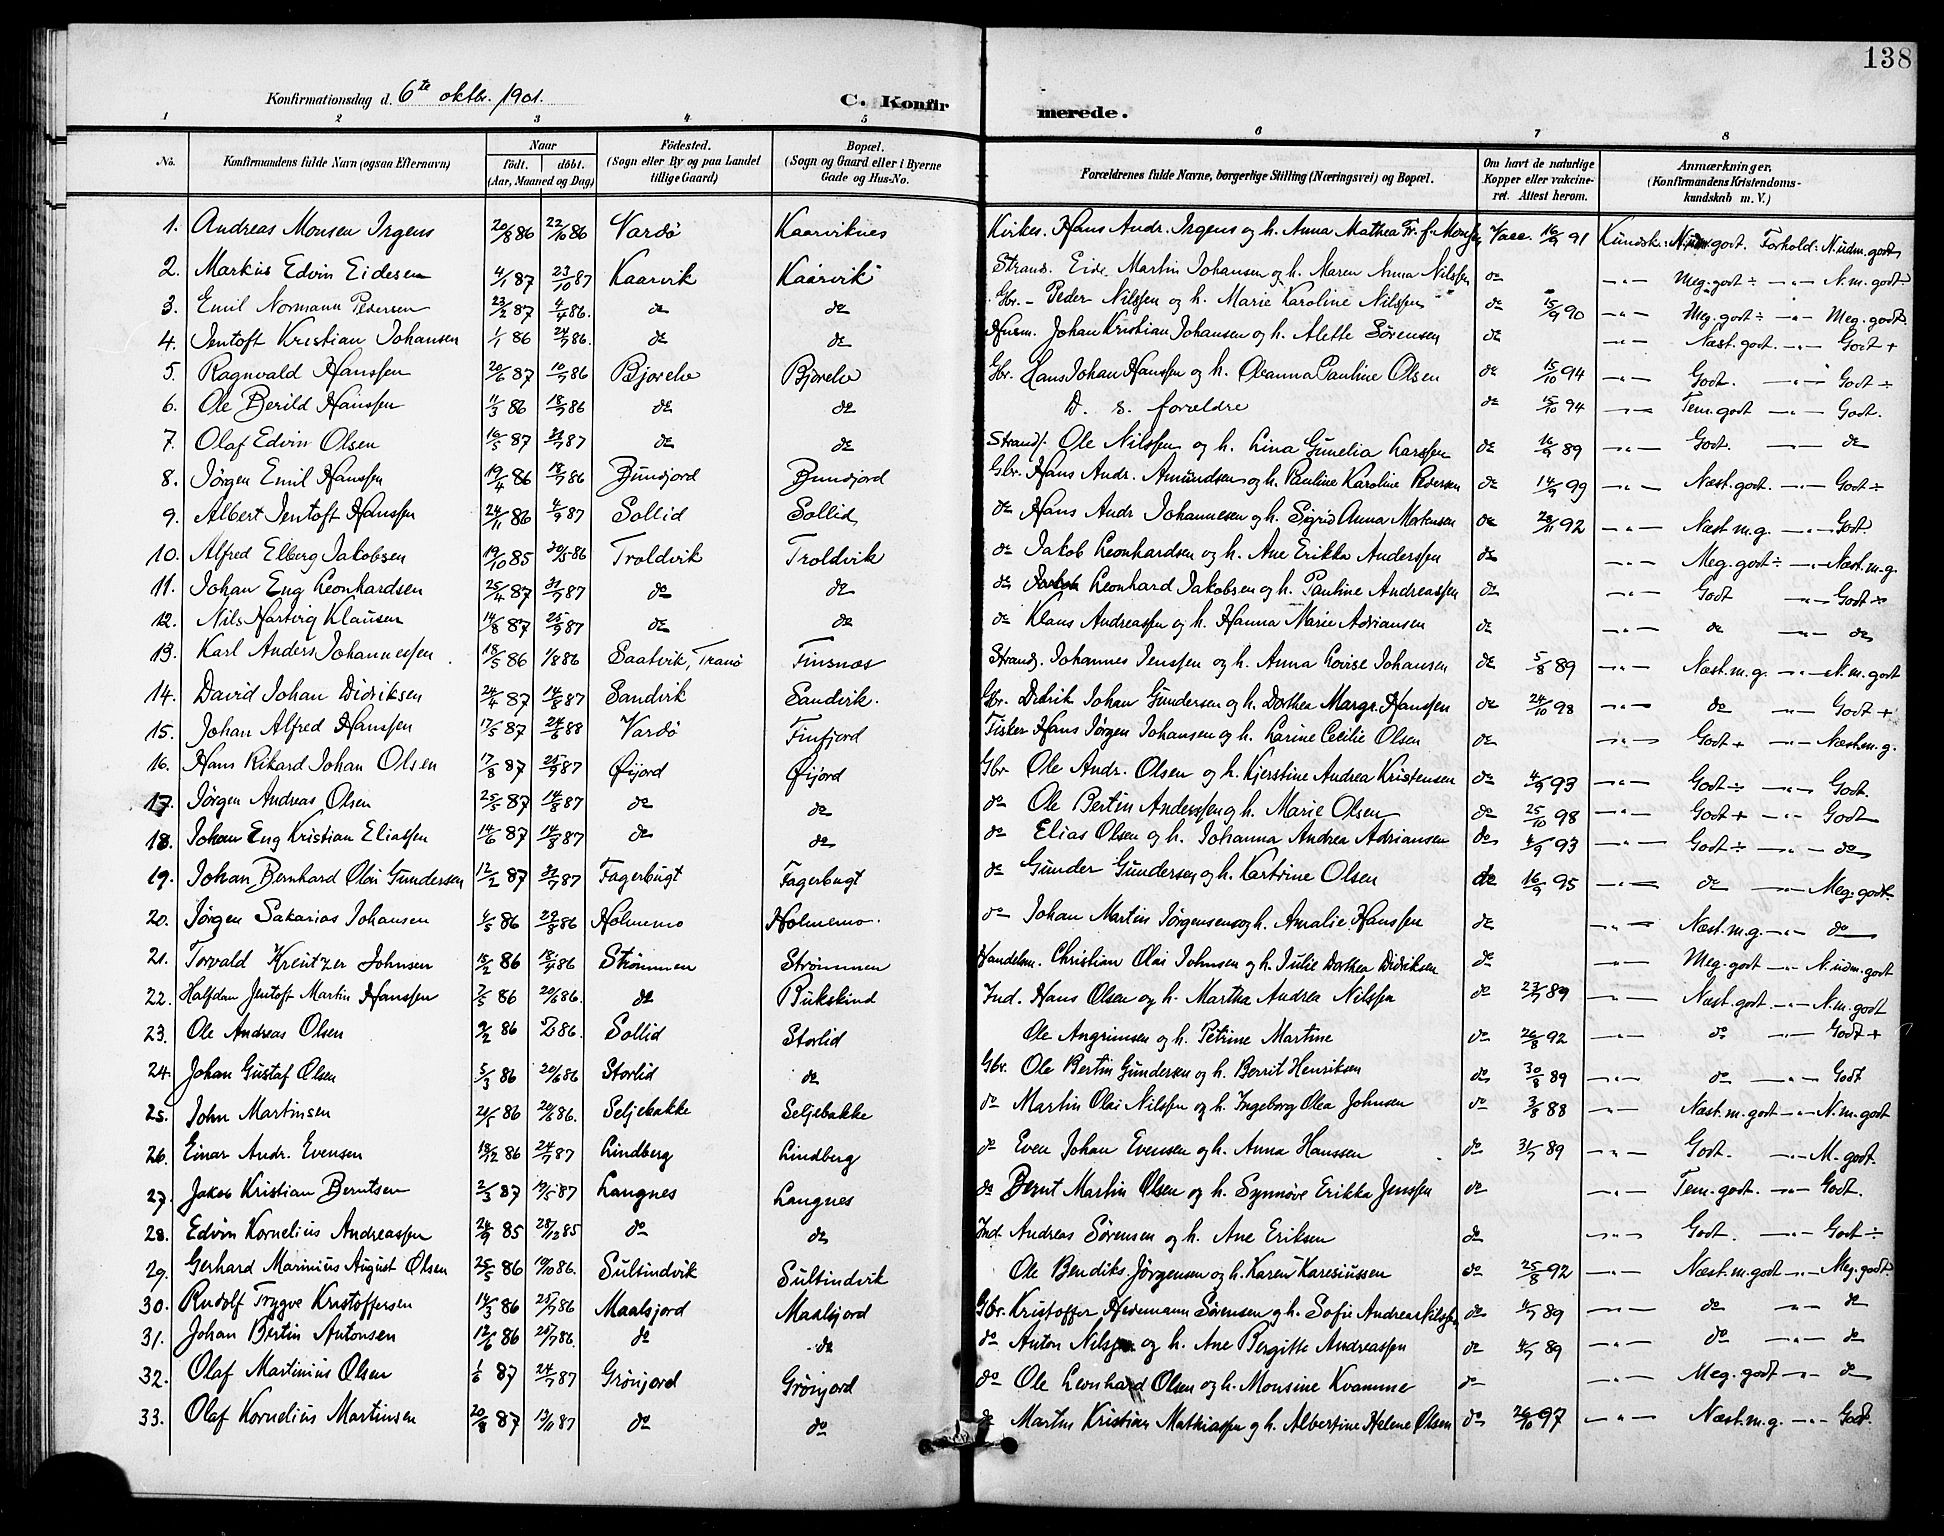 138
Konfirmationsdag d. 6te oktbr. 1901.
C. Konfirmerede.
1 2 3 4 5 6 7 8
No. Konfirmandens fulde Navn (ogsaa Efternavn) Naar födt. döbt. (Aar, Maaned og Dag) Födested. (Sogn eller By og paa Landet tillige Gaard) Bopæl. (Sogn og Gaard eller i Byerne Gade og Hus-No. Forældrenes fulde Navne, borgerlige Stilling (Næringsvei) og Bopæl. Om havt de naturlige Kopper eller vakcineret. Attest herom. Anmærkninger, (Konfirmandens Kristendomskundskab m. V.)
1. Andreas Monsen Irgens 20/8 86 22/10 86 Vardö Kaarviknes Kirkes. Hans Andr. Irgens og h. Anna Mathea Fr. f. Monsen Vacc. 16/9 91 Kundsk: N.udm.godt. Forhold: N.udm.godt
2. Markus Edvin Eidesen 4/1 87 23/10 87 Kaarvik Kaarvik Strands. Eide Martin Johansen og h. Maren Anna Nilssen do —"— Meg.godt ÷ —"— N.m.godt
3. Emil Normann Pedersen 23/2 87 4/4 86. do do Gbr. - Peder Nilssen og h. Marie Karoline Nilssen do 15/9 90 —"— Meg.godt ÷ —"— Meg.godt.
4. Jentoft Kristian Johansen 1/1 86 24/7 86. do do Husm. Johan Kristian Johansen og h. Alette Sørensen do —"— Næst.godt. —"— Godt +
5. Ragnvald Hanssen 20/6 87 10/7 86 Bjorelv Bjorelv Gbr. Hans Johan Hanssen og h. Oleanna Pauline Olsen do 15/10 94 —"— Godt. —"— Godt ÷
6. Ole Berild Hanssen 11/3 86 18/7 86 do do D. s. forældre do 15/10 94 —"— Tem.godt —"— Godt.
7. Olaf Edvin Olsen 16/5 87 31/7 87 do do Strands: Ole Nilssen og h. Lina Gunelia Larssen do 16/9 89 —"— Godt. —"— do
8. Jörgen Emil Hanssen 19/4 86 18/7 86 Bundjord Bundjord Gbr. Hans Andr. Amundsen og h. Pauline Karoline Pedersen do 14/9 99 —"— Næst.godt. —"— Godt ÷
9. Albert Jentoft Hanssen 24/11 86 4/9 87 Sollid Sollid do Hans Andr Johannesen og h. Sigrid Anna Mortensen do 28/11 92 —"— Næst.m.g. —"— Godt.
10. Alfred Elberg Jakobsen 19/10 85 30/5 86 Troldvik Troldvik do Jakob Leonhardsen og h. Ane Erikka Anderssen do —"— Meg.godt ÷ —"— Næst.m.g.
11. Johan Eng Leonhardsen 25/4 87 31/7 87 do do do Leonhard Jakobsen og h. Pauline Andreassen do —"— Godt —"— Godt ÷
12. Nils Hartvig Klausen 14/8 87 25/9 87 do do do Klaus Andreassen og h. Hanna Marie Adriansen do —"— do —"— do
13. Karl Anders Johannessen 18/5 86 1/8 86 Saatvik, Tranö Finsnæs Strands. Johannes Jenssen og h. Anna Lovise Johansen do 5/8 89 —"— Næst.m.g. —"— N.m.godt
14. David Johan Didriksen 24/4 87 14/8 87 Sandvik Sandvik. Gbr. Didrik Johan Gundersen og h. Dorthea Margr. Hanssen do 24/10 98 —"— do —"— Godt +
15. Johan Alfred Hanssen 17/5 87 24/6 88 Vardö Finfjord Fisker Hans Jørgen Johansen og h. Larine Cecilie Olsen do —"— Godt + —"— Næst.m.g.
16. Hans Rikard Johan Olsen 17/8 87 25/9 87 Øijord Øijord Gbr Ole Andr. Olsen og h. Kjerstine Andrea Kristensen do 4/9 93 —"— Godt ÷ —"— Godt.
17. Jörgen Andreas Olsen 25/5 87 14/8 87 do do do Ole Bertin Anderssen og h. Marie Olsen do 25/10 98 —"— Godt + —"— Godt
18. Johan Eng Kristian Eliassen 14/6 87 14/8 87 do do do Elias Olsen og h. Johanna Andrea Adriansen do 4/9 93 —"— Godt ÷ —"— do
19. Johan Bernhard Olai Gundersen 12/2 87 31/7 87 Fagerbugt Fagerbugt do Gunder Gundersen og h. Kartrine Olsen do 16/9 95 —"— do —"— Meg.godt
20. Jørgen Sakarias Johansen 4/5 86 29/8 86 Holmemo Holmemo. do Johan Martin Jørgensen og h. Amalie Hanssen do —"— Næst.m.g. —"— do
21. Torvald Kreutzer Johnsen 15/2 86 18/4 86 Strömmen Strömmen Handelsm. Christian Olai Johnsen og h. Julie Dorthea Didriksen do —"— Meg.godt —"— N.udm.godt
22. Halfdan Jentoft Martin Hanssen 7/5 86 20/6 86. do Bukskind Ind. Hans Olsen og h. Martha Andrea Nilssen do 23/7 89 —"— Næst.godt. —"— N.m.godt
23. Ole Andreas Olsen 9/2 86 86. Sollid Storlid Ole Angrimsen og h. Petrine Martine do 26/8 92 —"— do —"— Godt +
24. Johan Gustaf Olsen 5/3 86 20/6 86 Storlid do Gbr. Ole Bertin Gundersen og h. Berrit Henriksen do 30/8 89 —"— do —"— Godt
25. John Martinsen 21/5 86 20/6 86. Seljebakke Seljebakke do Martin Olai Nilssen og h. Ingeborg Olea Johnsen do 3/8 88 —"— Næst.m.godt —"— N.m.godt
26. Einar Andr. Evensen 18/12 86 24/7 87 Lindberg Lindberg do Even Johan Evensen og h. Anna Hanssen do 31/7 89 —"— Godt. —"— M.godt.
27. Jakob Kristian Berntsen 2/3 87 19/5 87 Langnes Langnes do Bernt Martin Olsen og h. Synnöve Erikka Jenssen do —"— Tem.godt. —"— Godt.
28. Edvin Kornelius Andreassen 24/9 85 28/12 85 do do Ind. Andreas Sörensen og h. Ane Eriksen do —"— Godt. —"— Godt ÷
29. Gerhard Marinius August Olsen 25/5 86 10/10 86. Sultindvik Sultindvik Ole Bendiks Jörgensen og h. Karen Karesiussen do 25/8 92 —"— Næst.m.godt —"— Meg.godt
30. Rudolf Trygve Kristoffersen 14/3 86 25/7 86 Maalsjord Maalsjord Gbr. Kristoffer Hedemann Sörensen og h. Sofie Andrea Nilssen do 4/7 89 —"— do —"— do
31. Johan Bertin Antonsen 12/6 86 25/7 86. do do do Anton Nilssen og h. Ane Bergitte Andreassen do 4/7 89 —"— do —"— do
32. Olaf Martinius Olsen 1/6 87 24/7 87 Grönjord Grönjord do Ole Leonhard Olsen og h. Monsine Kvamme do —"— Meg.godt —"— do
33. Olaf Kornelius Martinsen 20/8 87 13/11 87 do do do Martin Kristian Mathiassen og h. Albertine Helene Olsen do 26/10 97 —"— Næst.m.g. —"— Godt.